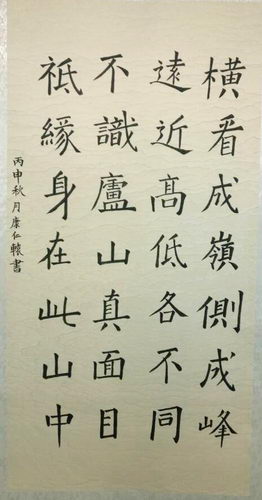 橫看成嶺側成峰
遠近高低各不同
不識廬山真面目
祗緣身在此山中
丙申秋月康仁轅書